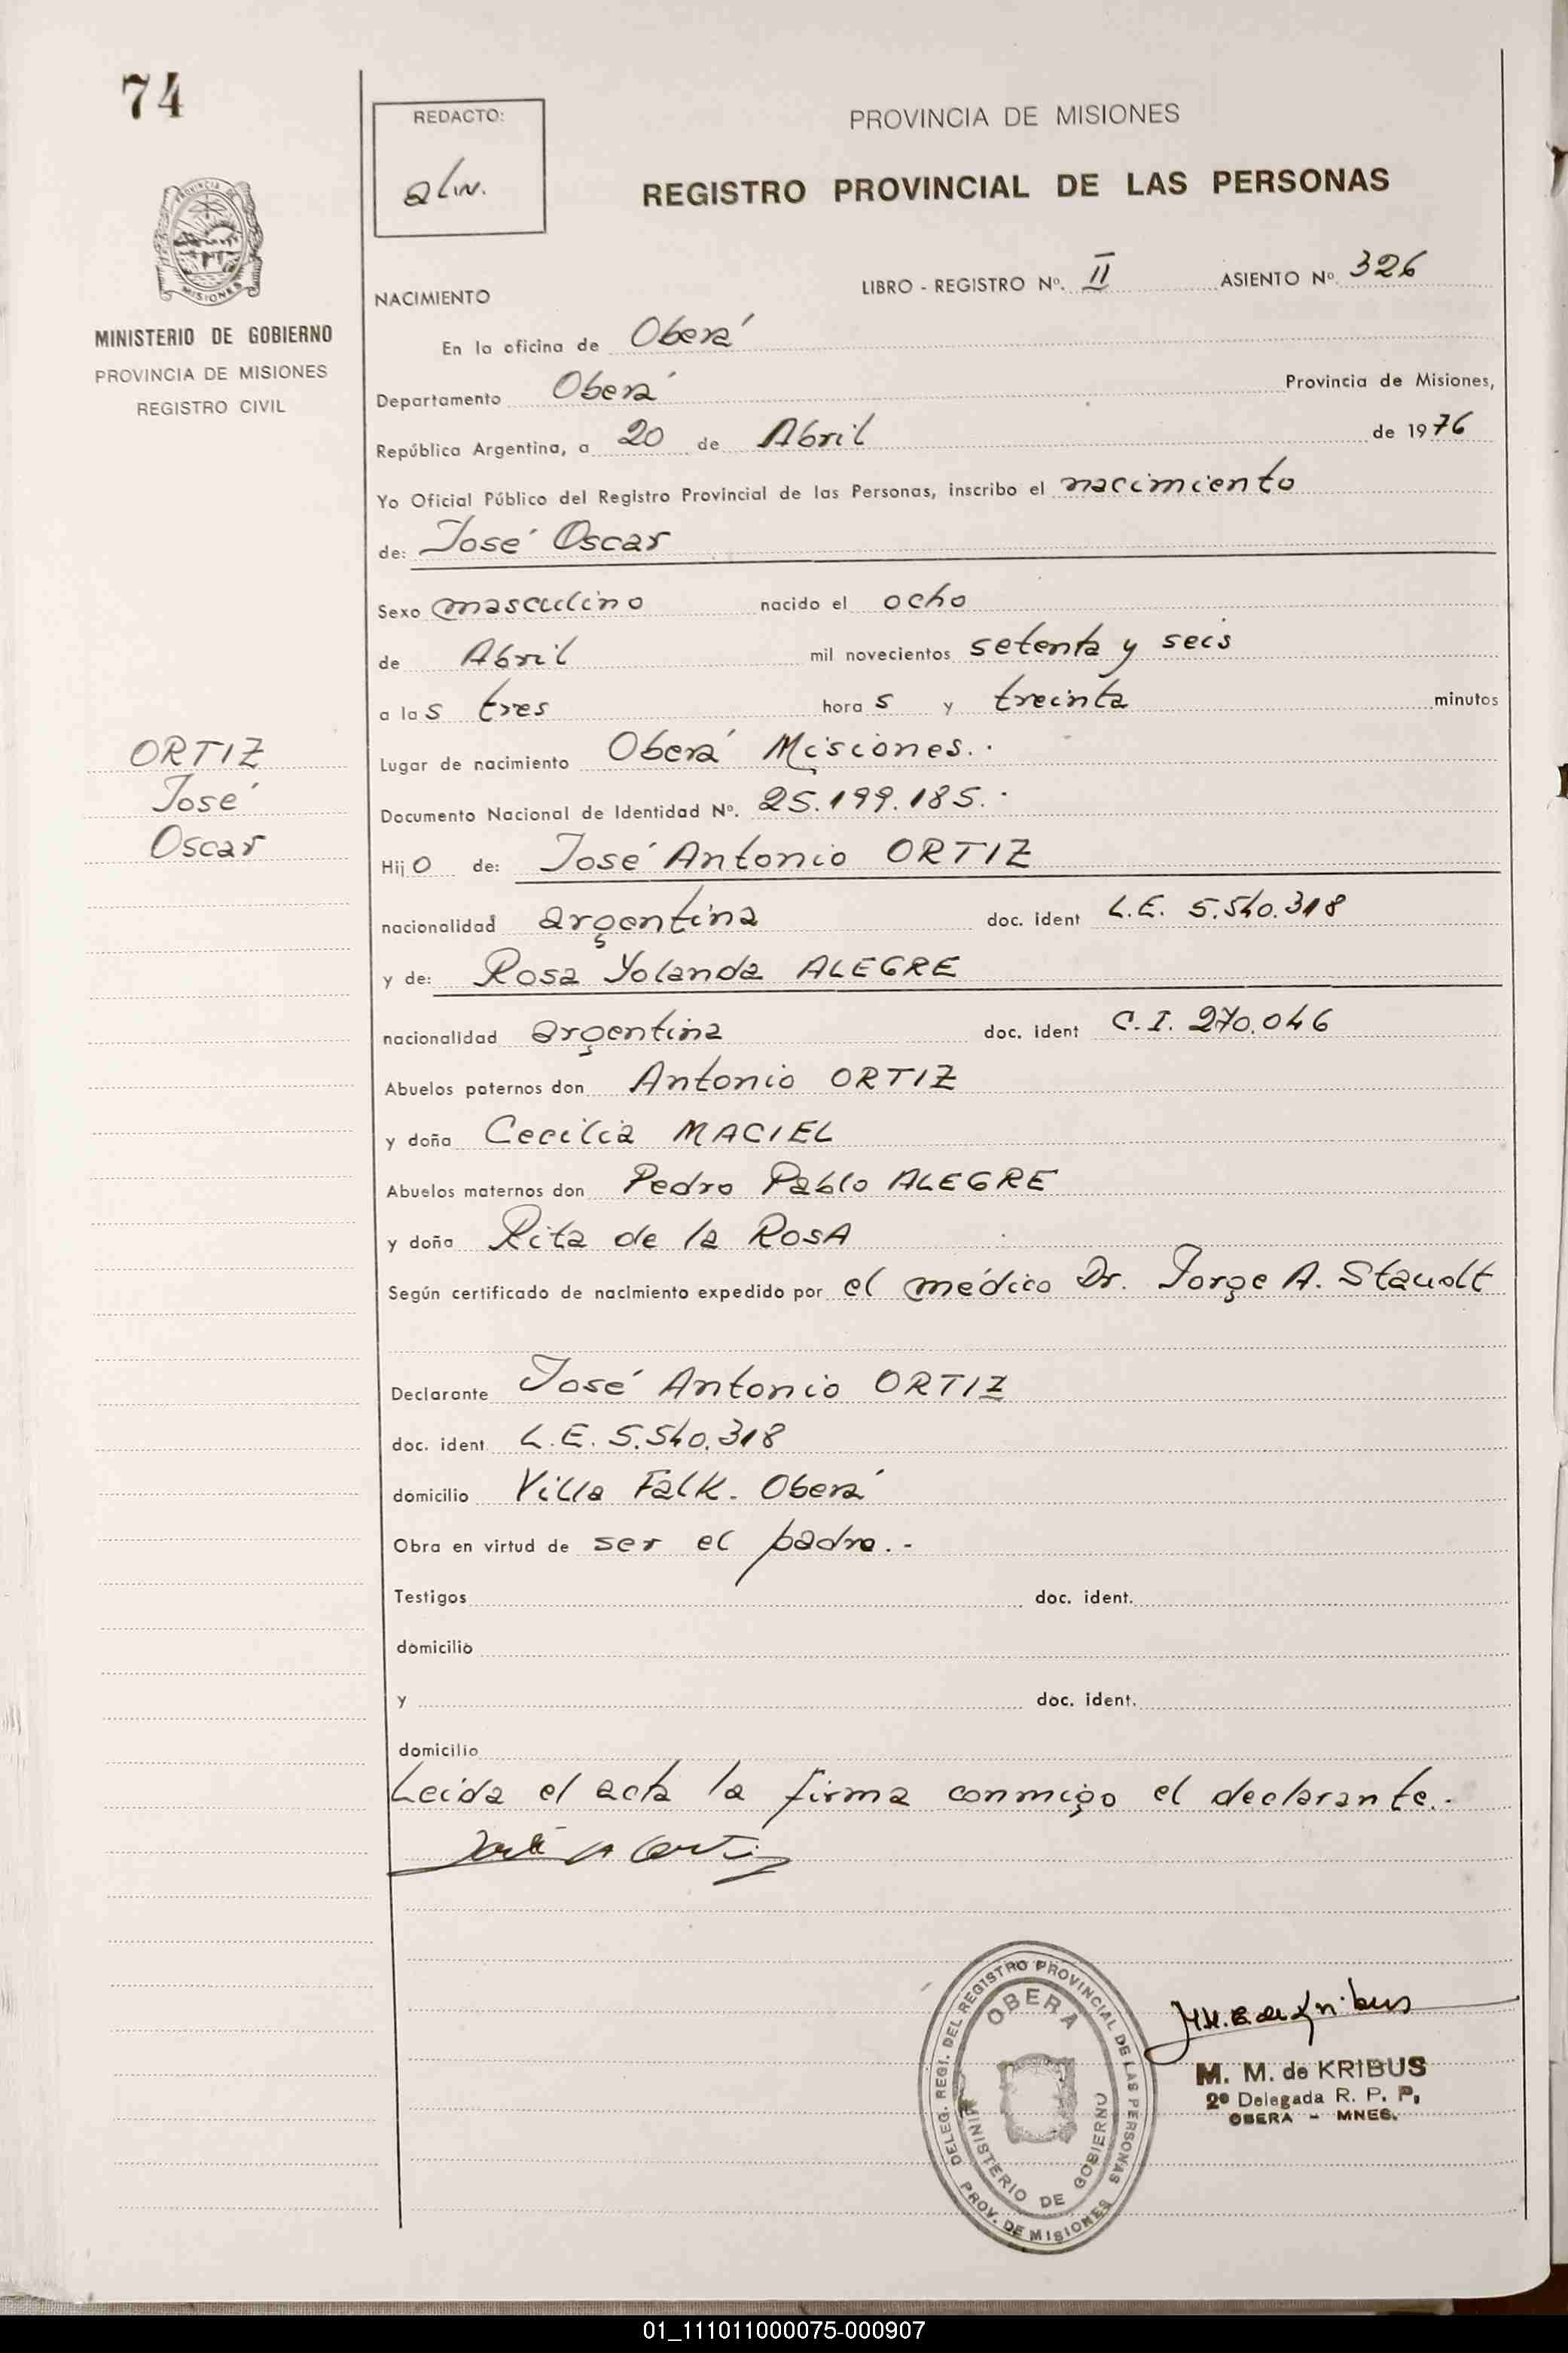 74
REDACTO:
alin.
PROVINCIA DE MISIONES
REGISTRO PROVINCIAL DE LAS PERSONAS
PROVINCIA DE
MISIONES
MINISTERIO DE GOBIERNO
PROVINCIA DE MISIONES
REGISTRO CIVIL
NACIMIENTO
LIBRO - REGISTRO Nº. II ASIENTO Nº. 326
En la oficina de Oberá
Departamento Oberá Provincia de Misiones,
República Argentina, a 20 de Abril de 1976
Yo Oficial Público del Registro Provincial de las Personas, inscribo el nacimiento
de: José Oscar
Sexo masculino nacido el ocho
de Abril mil novecientos setenta y seis
a las tres horas y treinta minutos
Lugar de nacimiento Oberá Misiones.
Documento Nacional de Identidad Nº. 25.199.185.
ORTIZ
José
Oscar
Hijo de: José Antonio ORTIZ
nacionalidad argentina doc. ident L.E. 5.540.318
y de: Rosa Yolanda ALEGRE
nacionalidad argentina doc. ident C.I. 270.046
Abuelos paternos don Antonio ORTIZ
y doña Cecilia MACIEL
Abuelos maternos don Pedro Pablo ALEGRE
y doña Rita de la ROSA
Según certificado de nacimiento expedido por el médico Dr. Jorge A. Staudt
Declarante José Antonio ORTIZ
doc. ident. L.E. 5.540.318
domicilio Villa Falk. Oberá
Obra en virtud de ser el padre.-
Testigos doc. ident.
domicilio
y doc. ident.
domicilio
Leida el acta la firma conmigo el declarante.-
José A Ortiz
DELEG. REGI. DEL REGISTRO PROVINCIAL DE LAS PERSONAS
OBERA
MINISTERIO DE GOBIERNO
PROV. DE MISIONES
M.M. B de Kribus
M. M. de KRIBUS
2º Delegada R. P. P.
OBERA - MNES.
01_111011000075-000907